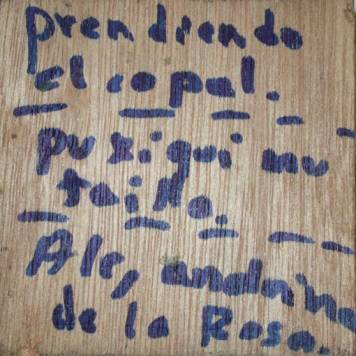 prendiendo
el copal.
puxiqui mu
taiño.
Alejandrino
de la Rosa.